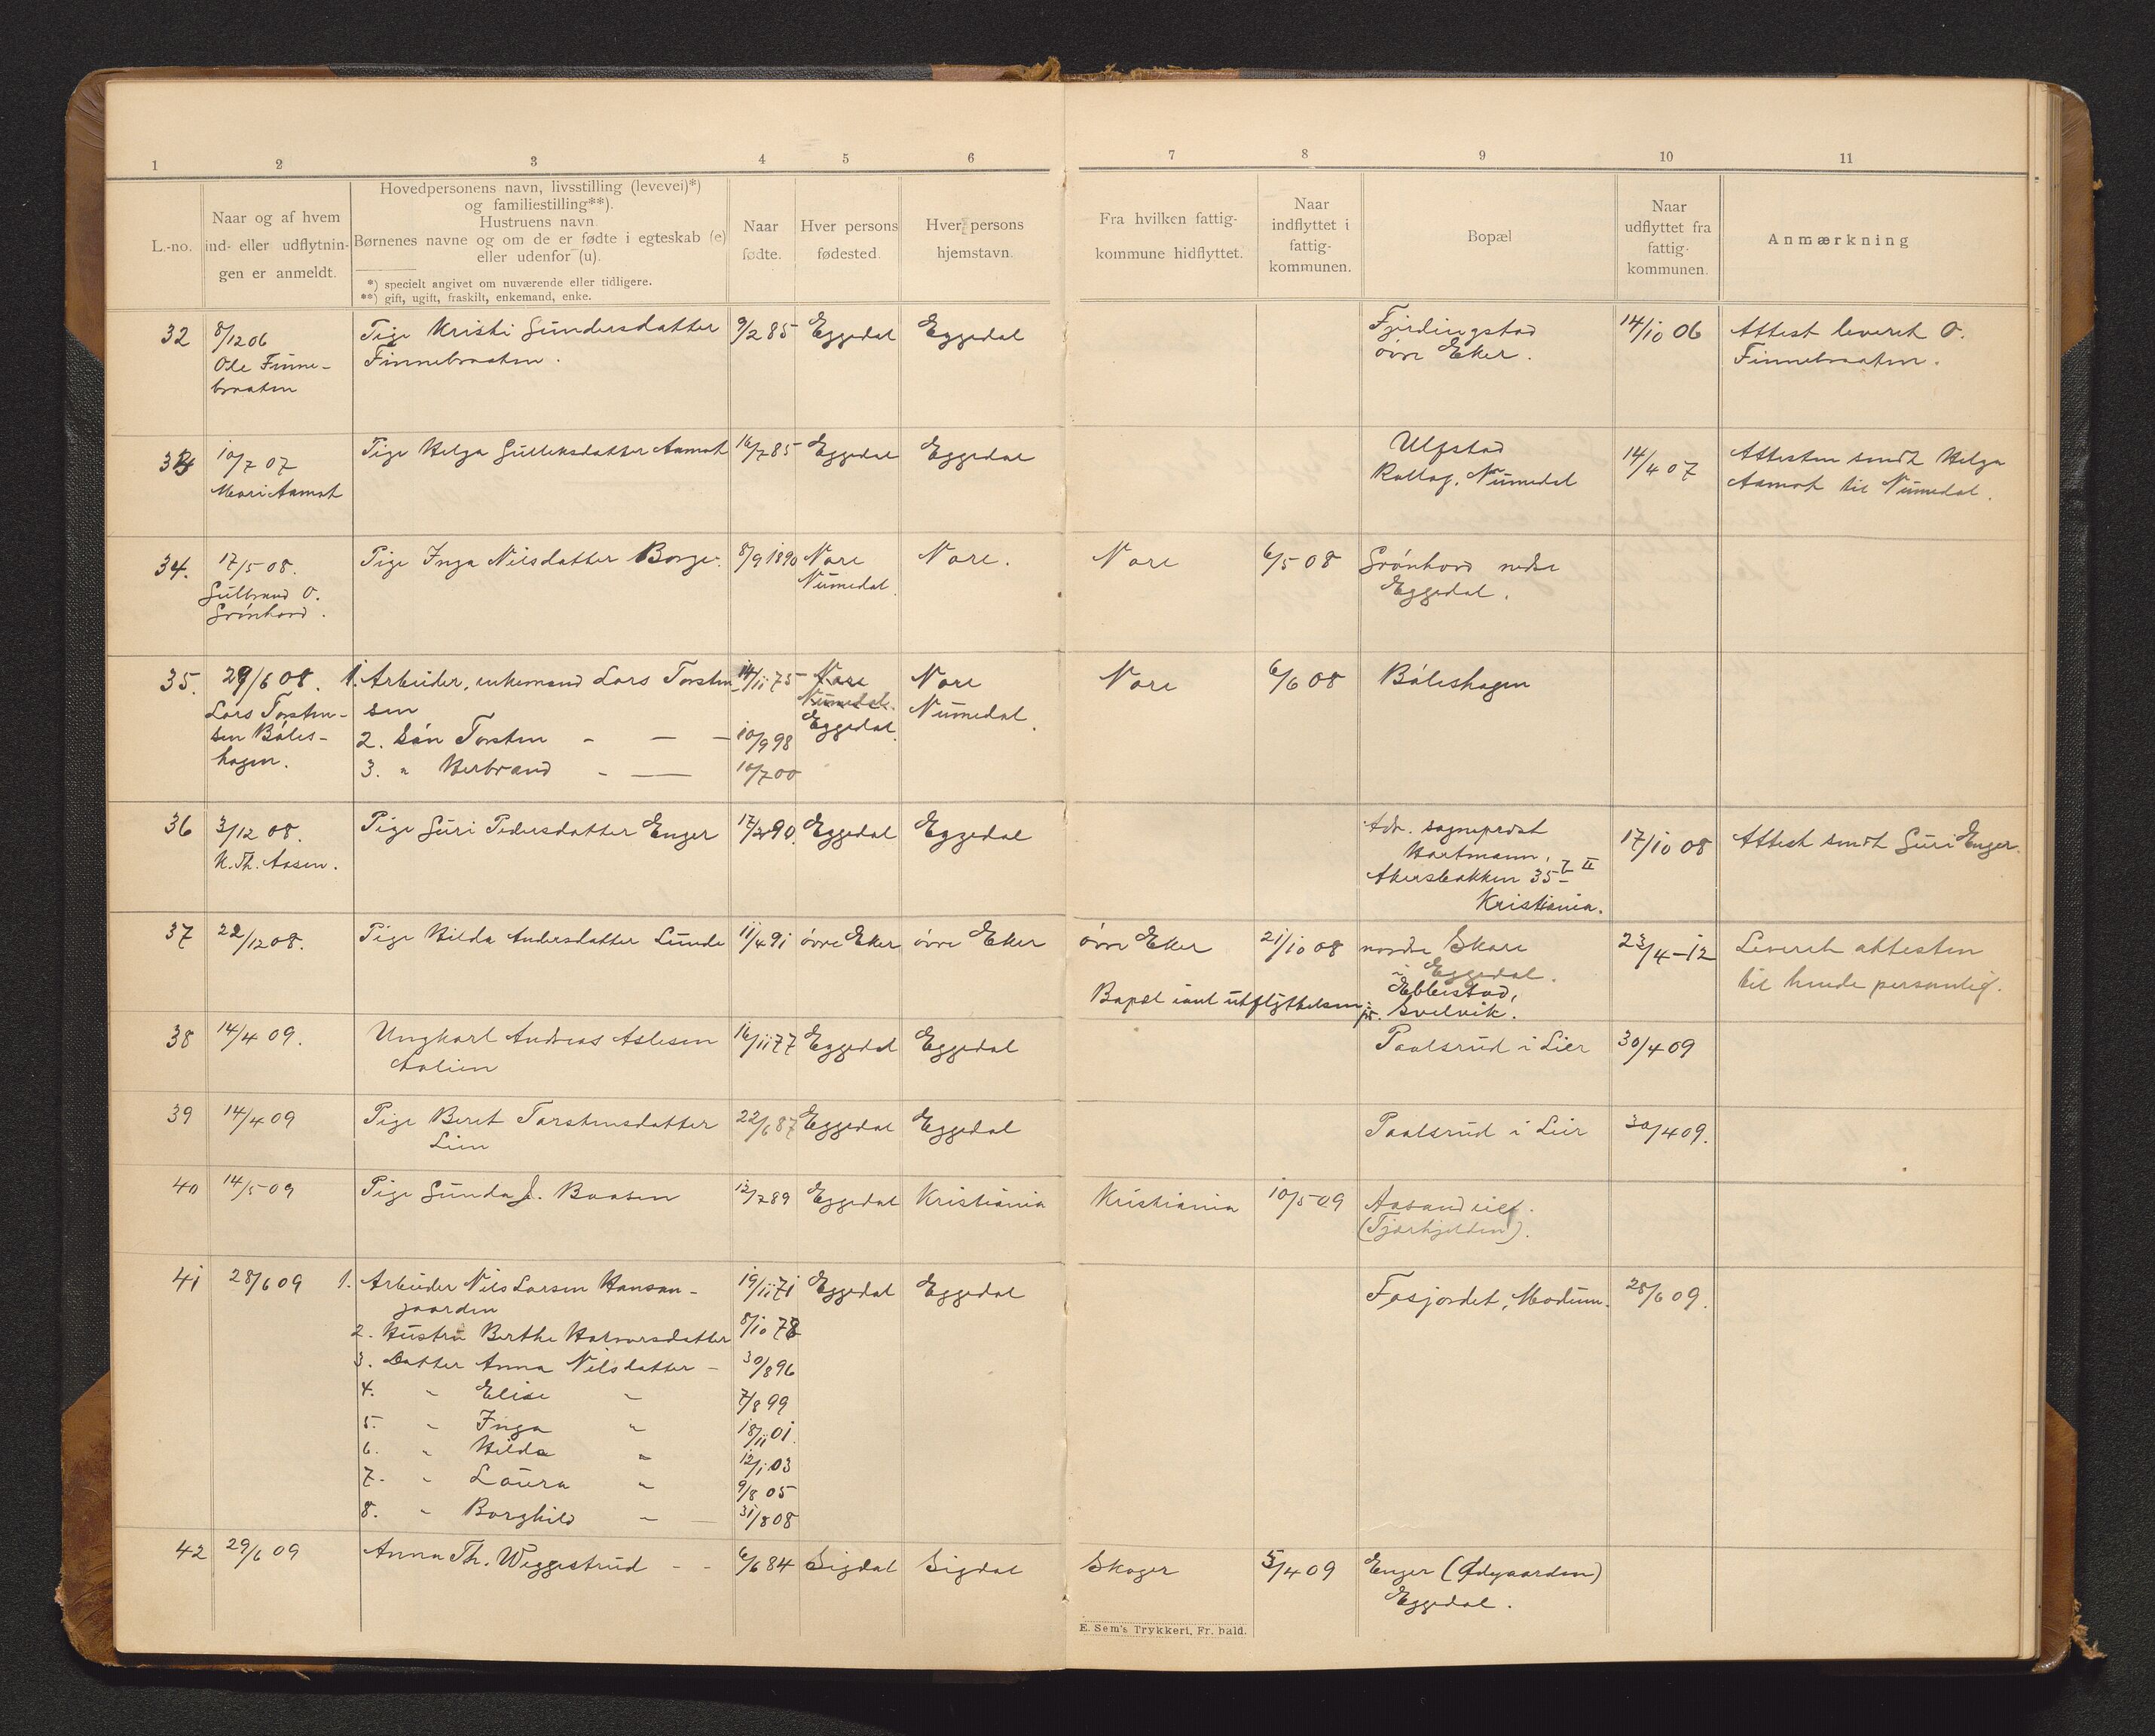 1 2 3 4 5 6 7 8 9 10 11
L.-no.
Naar og af hvem
ind- eller udflytnin-
gen er anmeldt.
Hovedpersonens navn, livsstilling (levevei)*)
og familiestilling**).
Hustruens navn.
Børnenes navne og om de er fødte i egteskab (e)
eller udenfor (u).
*) specielt angivet om nuværende eller tidligere.
**) gift, ugift, fraskilt, enkemand, enke.
Naar
fødte.
Hver persons
fødested.
Hver persons
hjemstavn.
Fra hvilken fattig-
kommune hidflyttet.
Naar
indflyttet i
fattig-
kommunen.
Bopæl
Naar
udflyttet fra
fattig-
kommunen.
Anmærkning
32
8/12 06
Ole Finne-
braaten
Pige Kristi Gundersdatter
Finnebraaten.
9/2 85
Eggedal
Eggedal
Fjerdingstad
övre Eker.
14/10 06
Attest leveret O.
Finnebraaten.
33
10/7 07
Mari Aamot
Pige Helga Gulleksdatter Aamot
16/7 85
Eggedal
Eggedal
Ulfstad
Rollag, Numedal
14/4 07
Attesten sendt Helga
Aamot til Numedal.
34.
17/5 08.
Gulbrand O.
Grönhovd.
Pige Inga Nilsdatter Borge.
8/9 1890
Nore
Numedal.
Nore.
Nore
6/5 08
Grönhovd nedre
Eggedal.
35.
29/6 08.
Lars Torsten-
sen Böles-
hagen.
1. Arbeider, enkemand Lars Torsten-
sen
2. Sön Torsten - - -
3. " Herbrand - -
14/11 75
10/9 98
10/7 00
Nore
Numedal.
Eggedal.
Nore
Numedal.
Nore
6/6 08
Böleshagen
36
3/12 08.
N. Th. Aasen.
Pige Guri Pedersdatter Enger
17/2 90.
Eggedal
Eggedal
Adr. sogneprest
Hartmann,
Akersbakken 35 b II
Kristiania.
17/10 08
Attest sendt Guri Enger.
37
22/12 08.
Pige Hilda Andersdatter Lunde
11/4 91
övre Eker
övre Eker
övre Eker
21/10 08
nordre Skare
i Eggedal.
Bopæl iant utflyttelsen:
Ebbestad,
pr. Svelvik.
23/4-12
Leveret attesten
til hende personlig.
38
14/4 09.
Ungkarl Andreas Aslesen
Aalien
16/11 77
Eggedal
Eggedal
Paalsrud i Lier
30/4 09
39
14/4 09
Pige Beret Torstensdatter
Lien
22/6 87
Eggedal
Eggedal
Paalsrud i Lier
30/4 09.
40
14/5 09
Pige Gunda J. Braaten
12/7 89
Eggedal
Kristiania
Kristiania
10/5 09
Aasand
41
28/6 09
1. Arbeider Nils Larsen Hansen-
gaarden
2. Hustru Berthe Halvorsdatter
3. Datter Anna Nilsdatter -
4. " Elise "
5. " Inga "
6. " Hilda "
7. " Laura "
8. " Borghild -
19/11 71
8/10 78
30/8 96
7/8 99
18/11 01.
12/1 03
9/8 05
31/8 08
Eggedal
Eggedal
Fosjordet, Modum.
28/6 09.
42
29/6 09
Anna Th. Weggestrud - -
6/6 84
Sigdal
Sigdal
Skoger
5/4 09
Enger (Ødegaarden)
Eggedal.
E. Sem's Trykkeri, Fr. hald.